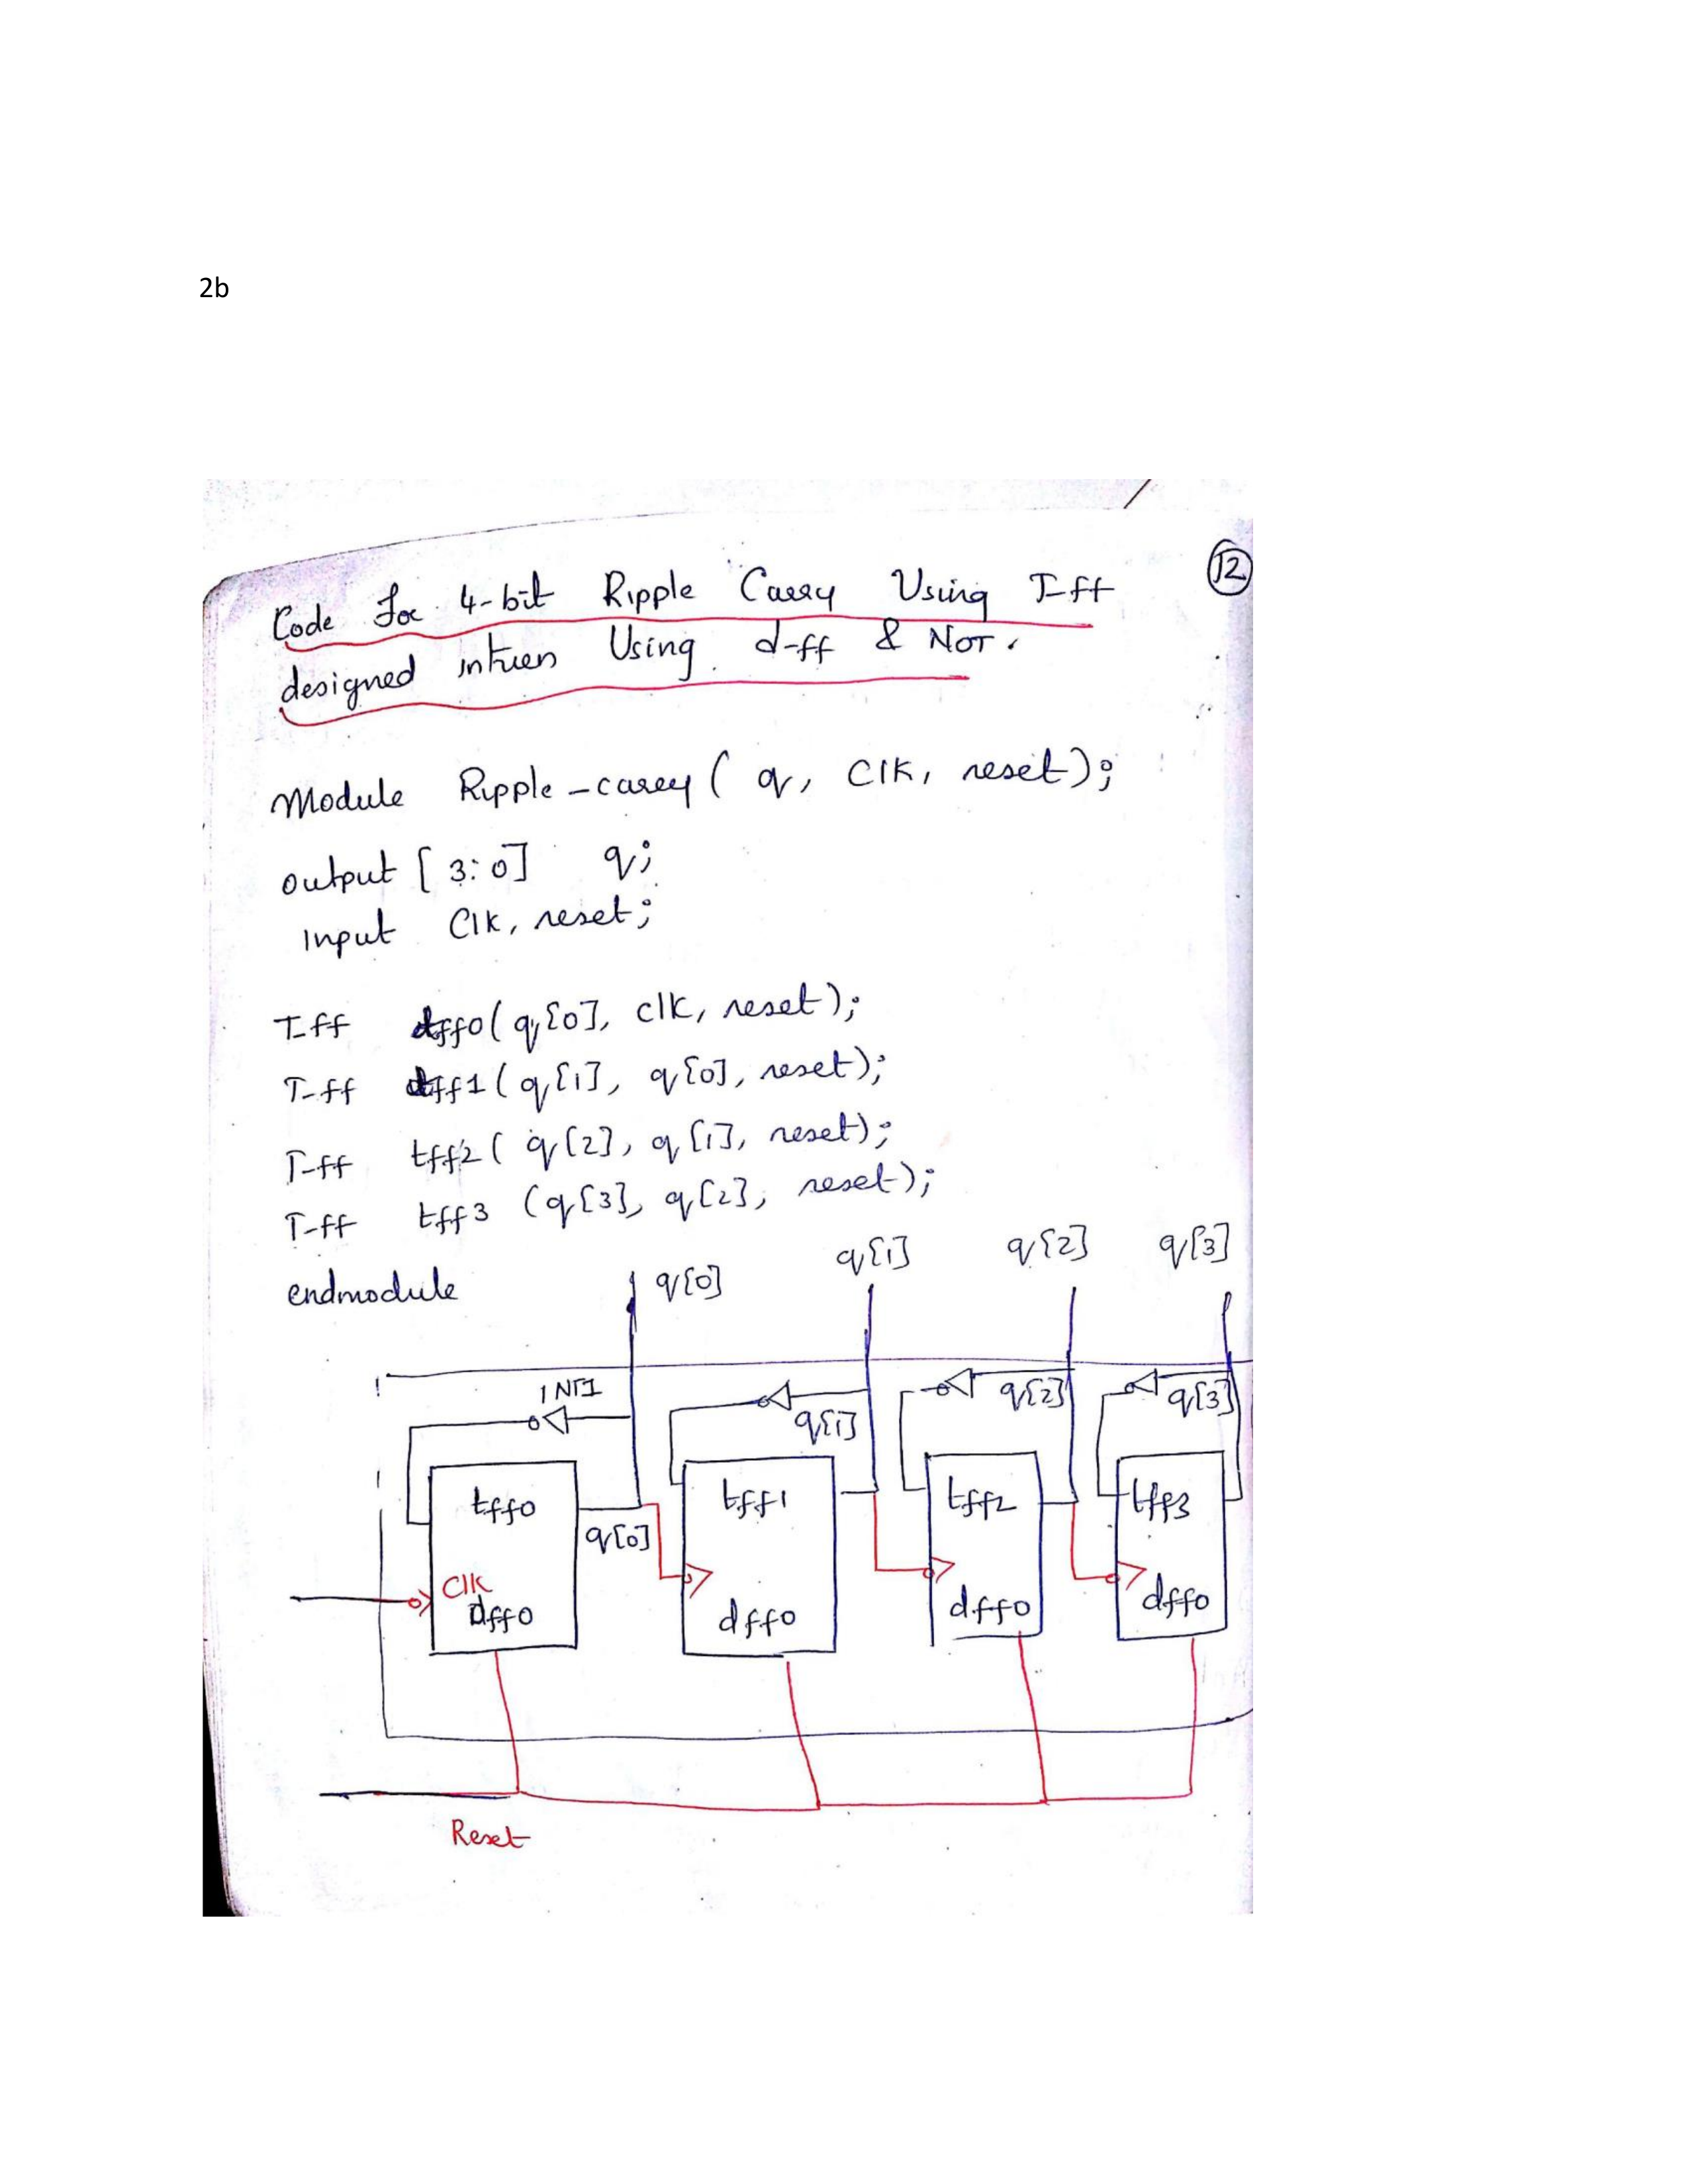 2b
12
Code for 4-bit Ripple Carry Using T-ff
designed inturn Using d-ff & NOT.
Module Ripple-carry ( q, Clk, reset);
output [ 3:0] q;
input Clk, reset;
T-ff tff0( q[0], clk, reset);
T-ff tff1 ( q[1], q[0], reset);
T-ff tff2 ( q[2], q[1], reset);
T-ff tff3 (q[3], q[2], reset);
endmodule
q[0] q[1] q[2] q[3]
q[1] q[2] q[3]
tff0 tff1 tff2 tff3
q[0]
Clk
dff0 dff0 dff0 dff0
Reset